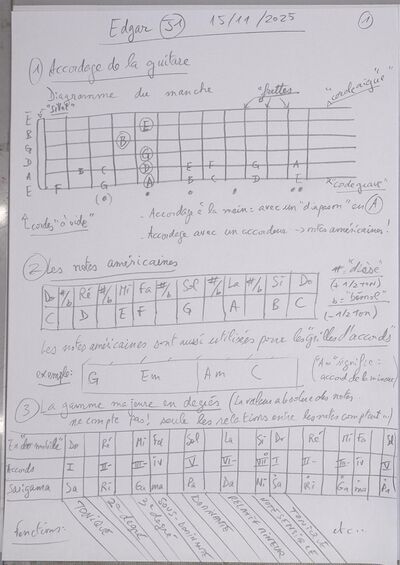 Edgar S1 15/11/2025 1
1 Accordage de la guitare
Diagramme du manche
"frettes"
"corde aigüe"
"Sillet"
E
B
G
D
A
E
E
B
G
D
B C D E F G A
F G A B C D E
"corde grave"
"cordes "à vide"
- Accordage à la main: avec un "diapason" en A
- Accordage avec un accordeur → notes américaines!
2 Les notes américaines
Do #/b Ré #/b Mi Fa #/b Sol #/b La #/b Si Do
C D E F G A B C
#: "dièse"
(+1/2 ton)
b = "bémol"
(-1/2 ton)
Les notes américaines sont aussi utilisées pour les "grilles d'accords"
exemple: G Em Am C
("Am" signifie:
accord de la mineur)
3 La gamme majeure en degrés (La valeur absolue des notes
ne compte pas! seule les relations entre les notes comptent)
En "do mobile" Do Ré Mi Fa Sol La Si Do Ré Mi Fa Sol
Accords I II- III- IV V VI- VII I II- III- IV V
Sarigama Sa Ri Ga ma Pa Da Ni Sa Ri Ga ma Pa
Fonctions:
TONIQUE
2e degré
3e degré
SOUS-DOMINANTE
DOMINANTE
RELATIF MINEUR
NOTE SENSIBLE
TONIQUE
etc..